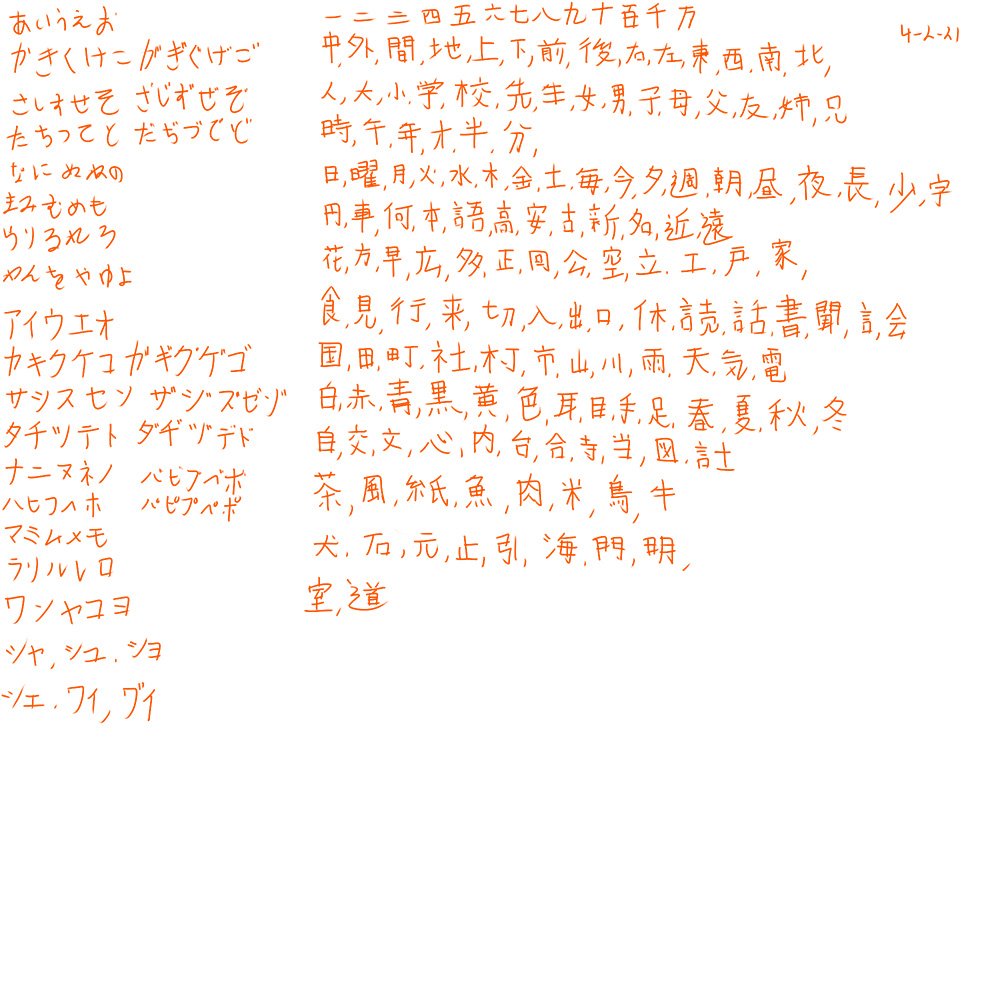 あいうえお
かきくけこ がぎぐげご
さしすせそ ざじずぜぞ
たちつてと だぢづでど
なにぬぬの
まみむめも
らりるれろ
わんをやゆよ
アイウエオ
カキクケコ ガギグゲゴ
サシスセソ ザジズゼゾ
タチツテト ダヂヅデド
ナニヌネノ バビブベボ
ハヒフヘホ パピプペポ
マミムメモ
ラリルレロ
ワンヤユヨ
シャ,シュ.ショ
シェ.ワイ,ヴイ
一二三四五六七八九十百千万
中,外,間,地,上,下,前,後,右,左,東,西,南,北,
人,大,小,学,校,先,生,女,男,子,母,父,友,姉,兄
時,午,年,才,半,分,
日,曜,月,火,水,木,金,土,毎,今,夕,週,朝,昼,夜,長,少,字
円,車,何,本,語,高,安,古,新,名,近,遠
花,方,早,広,多,正,回,公,空,立,工,戸,家,
食,見,行,来,切,入,出,口,休,読,話,書,聞,言,会
国,田,町,社,村,市,山,川,雨,天,気,電
白,赤,青,黒,黄,色,耳,目,手,足,春,夏,秋,冬
自,交,文,心,内,台,合,寺,当,図,計
茶,風,紙,魚,肉,米,鳥,牛
犬,石,元,止,引,海,門,明,
室,道
4-2-21